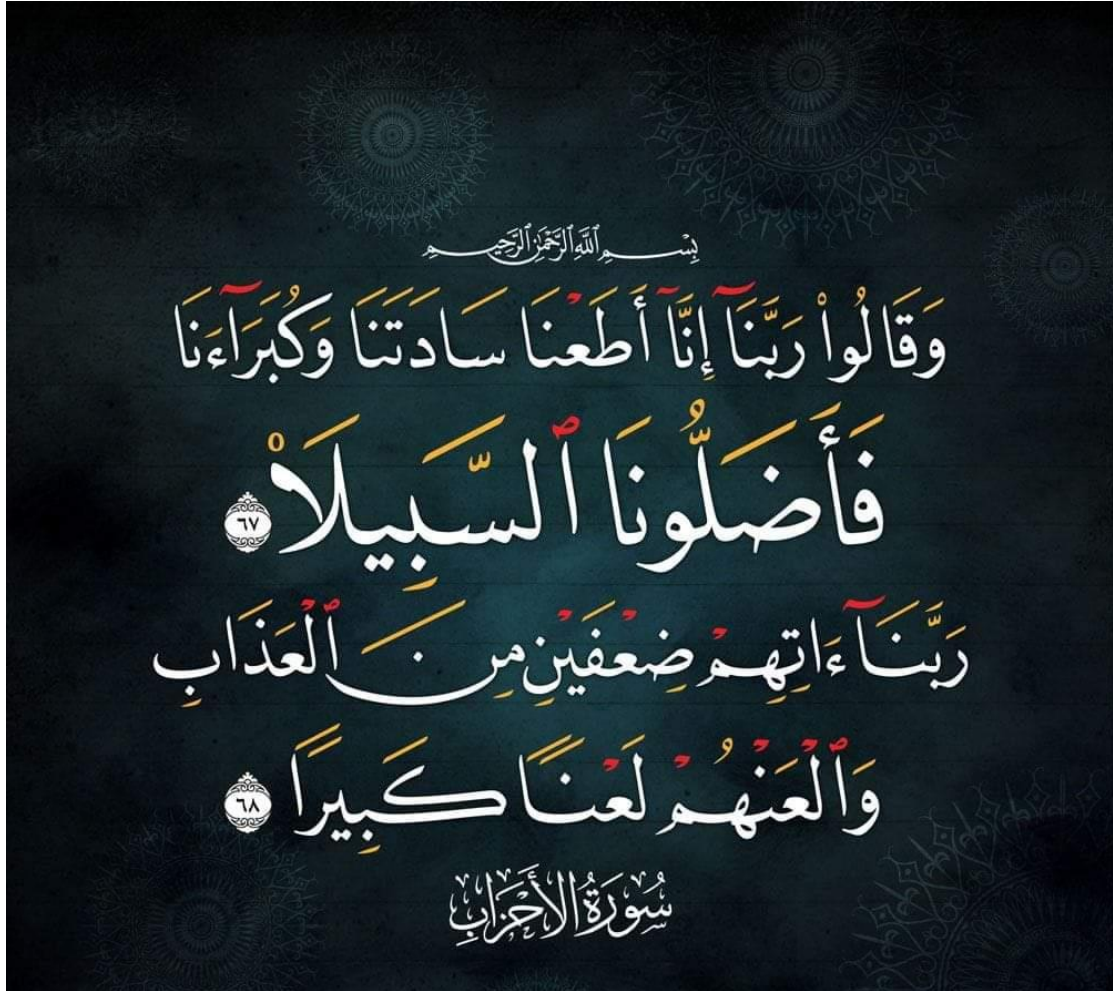 بِسْمِ ٱللَّهِ ٱلرَّحْمَٰنِ ٱلرَّحِيمِ
وَقَالُوا۟ رَبَّنَآ إِنَّآ أَطَعْنَا سَادَتَنَا وَكُبَرَآءَنَا
فَأَضَلُّونَا ٱلسَّبِيلَا۠ ٦٧
رَبَّنَآ ءَاتِهِمْ ضِعْفَيْنِ مِنَ ٱلْعَذَابِ
وَٱلْعَنْهُمْ لَعْنًا كَبِيرًا ٦٨
سُورَةُ الأَحْزَابِ